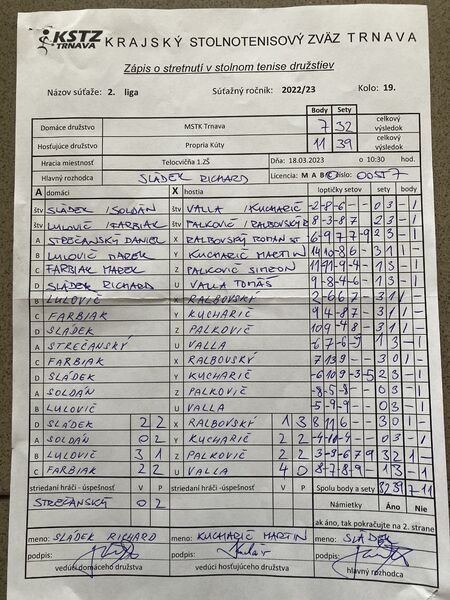 KSTZ
TRNAVA
KRAJSKÝ STOLNOTENISOVÝ ZVÄZ TRNAVA
Zápis o stretnutí v stolnom tenise družstiev
Názov súťaže: 2. liga Súťažný ročník: 2022/23 Kolo: 19.
Body Sety
Domáce družstvo MSTK Trnava 7 32 celkový výsledok
Hosťujúce družstvo Propria Kúty 11 39 celkový výsledok
Hracia miestnosť Telocvičňa 1.ZŠ Dňa: 18.03.2023 o 10:30 hod.
Hlavný rozhodca SLÁDEK RICHARD Licencia: M A B C číslo:
A domáci X hostia loptičky setov sety body
štv SLÁDEK / SOLDÁN štv VALLA / KUCHARIČ -2-8-6-- 03 -1
štv LULOVIČ / FARBIAK štv PALKOVIČ / RALBOVSKÝ 8-3-8-7 23 -1
A STREČANSKÝ DANIEL X RALBOVSKÝ ROMAN ST 6-977-9 23 -1
B LULOVIČ MAREK Y KUCHARIČ MARTIN 1410-86 31 1-
C FARBIAK MAREK Z PALKOVIČ SIMEON 11-11-9-4- 13 -1
D SLÁDEK RICHARD U VALLA TOMÁŠ 9-8-4-6 -13 -1
B LULOVIČ X RALBOVSKÝ 2-667 31 1-
C FARBIAK Y KUCHARIČ 94-87 31 1-
D SLÁDEK Z PALKOVIČ 109-48 31 1-
A STREČANSKÝ U VALLA -67-6-9 13 -1
C FARBIAK X RALBOVSKÝ 7139-- 30 1-
D SLÁDEK Y KUCHARIČ -6109-3-5 23 -1
A SOLDÁN Z PALKOVIČ -8-5-8-- 03 -1
B LULOVIČ U VALLA -5-9-9-- 03 -1
D SLÁDEK 2 2 X RALBOVSKÝ 1 3 8116-- 30 1-
A SOLDÁN 0 2 Y KUCHARIČ 2 2 -4-10-4-- 03 -1
B LULOVIČ 3 1 Z PALKOVIČ 2 2 3-8-679 32 1-
C FARBIAK 2 2 U VALLA 4 0 8-7-8-9- 13 -1
striedaní hráči - úspešnosť V P striedaní hráči - úspešnosť V P Spolu body a sety 32 39 7-11
STREČANSKÝ 0 2 Námietky Áno Nie
ak áno, tak pokračujte na 2. strane
meno: SLÁDEK RICHARD meno: KUCHARIČ MARTIN meno: SLÁDEK
podpis: podpis: podpis:
vedúci domáceho družstva vedúci hosťujúceho družstva hlavný rozhodca